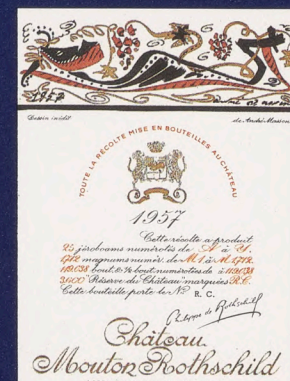 1957
Dessin inédit
de André Masson
TOUTE LA RÉCOLTE MISE EN BOUTEILLES AU CHÂTEAU
1957
Cette récolte a produit
25 jéroboams numérotés de A à Y.
1712 magnums numér. de M1 à M1712
bout. & ½ bout. numérotées de 1 à
"Réserve du Château" marquées R.C.
Cette bouteille porte le Nº R. C.
Philippe de Rothschild
Château
Mouton Rothschild